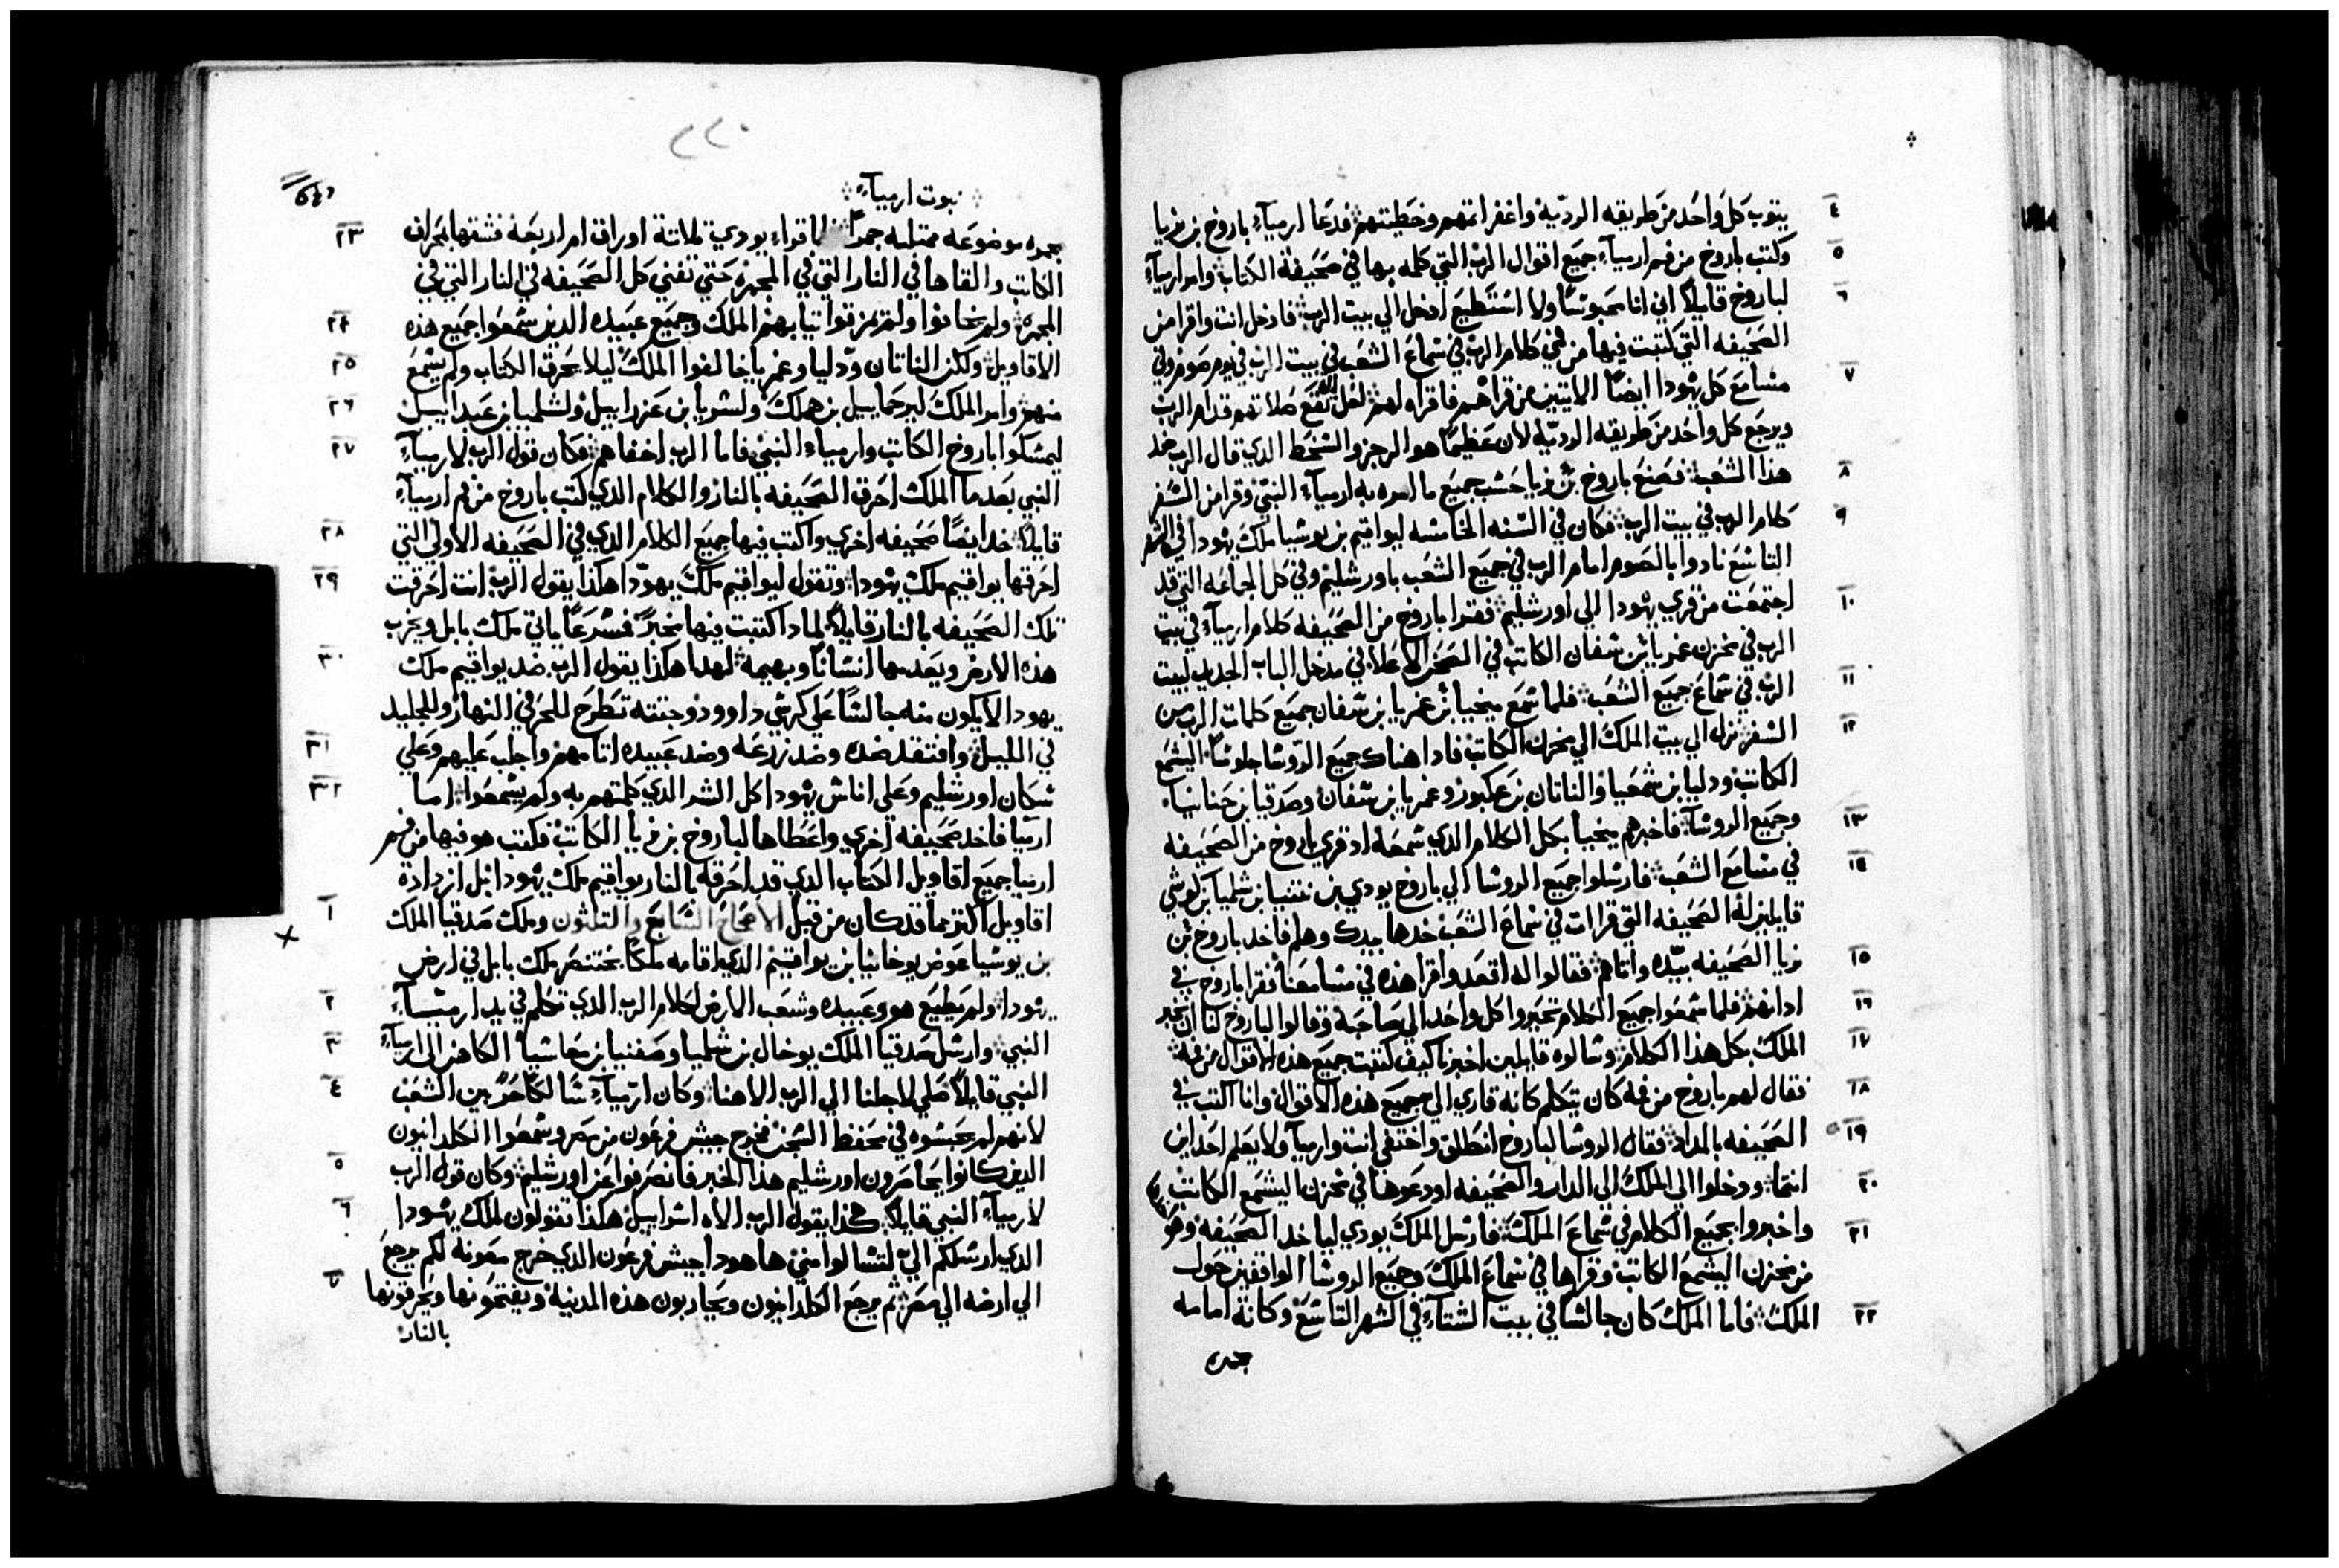 ٤ يتوب كل واحد من طريقه الرديّة واغفر اتمهم وخطيتهم فدعا ارميآء باروخ بن نريا
٥ وكتب باروخ من فم ارميآء جميع اقوال الرب التي كلمه بها في صحيفة الكتاب وامر ارميآء
٦ لباروخ قايلاً اني انا محبوسًا ولا استطيع ادخل الي بيت الرب فادخل انت واقرا من
الصحيفه التي كتبت فيها من فمي كلام الرب في سماع الشعب في بيت الرب في يوم صوم وفي
٧ مسامع كل يهودا ايضًا الاتيين من قراهم فاقراه لهم لعل تقع صلاتهم قدام الرب
ويرجع كل واحد من طريقه الرديّة لان عظيمًا هو الرجز والسخط الذي قال الرب ضد
٨ هذا الشعب فصنع باروخ بن نريا حسب جميع ما امره به ارمياء النبي وقرا من السفر
٩ كلام الرب في بيت الرب فكان في السنه الخامسه ليواقيم بن يوشيا ملك يهودا في الشهر
التاسع نادوا بالصوم امام الرب في جميع الشعب باورشليم وفي كل الجماعه التي قد
١٠ اجتمعت من قري يهودا الي اورشليم فقرا باروخ من الصحيفه كلام ارميآء في بيت
الرب في مخزن غمريا بن شفان الكاتب في الصحن الاعلا في مدخل الباب الجديد لبيت
١١ الرب في سماع جميع الشعب فلما سمع ميخيا بن غمريا بن شفان جميع كلمات الرب من
١٢ السفر نزل الي بيت الملك الي مخزن الكاتب فادا هناك جميع الروسا جلوسًا اليشمع
الكاتب ودليا بن شمعيا والناتان بن عكبور وغمريا بن شفان وصدقيا بن حنانيا
١٣ وجميع الروسآء فاخبرهم ميخيا بكل الكلام الذي سمعه اد قري باروخ من الصحيفه
١٤ في مسامع الشعب فارسلوا جميع الروسا الي باروخ يودي بن نتنيا بن شلميا بن كوشي
قايلين له الصحيفه التي قرات في سماع الشعب خدها بيدك وهلم فاخد باروخ بن
١٥ نريا الصحيفه بيده واتاهم فقالوا له اقعد واقرا هذه في مسامعنا فقرا باروخ في
١٦ ادانهم فلما سمعوا جميع الكلام تحيروا كل واحد الي صاحبة وقالوا لباروخ لنا ان نخبر
١٧ الملك بكل هذا الكلام وسالوه قايلين اخبرنا كيف كتبت جميع هذه الاقوال من فمه
١٨ فقال لهم باروخ من فمه كان يتكلم كانه قاري الي جميع هذه الاقوال وانا اكتب في
١٩ الصحيفه بالمداد فقال الروسا لباروخ انطلق واختفي انت وارميآ ولا يعلم احد اين
٢٠ انتما ودخلوا الي الملك الي الدار والصحيفه اودعوها في مخزن اليشمع الكاتب
٢١ واخبروا بجميع الكلام في سماع الملك فارسل الملك يودي لياخد الصحيفه وهو
من مخزن اليشمع الكاتب وقراها في سماع الملك وجميع الروسا الواقفين حول
٢٢ الملك فاما الملك كان جالسا في بيت الشتآء في الشهر التاسع وكانة امامه
جمره
٢٢٠
نبوت ارميآء
٢٣ جمره موضوعه ممتليه جمرًا فلما قراء يودي تلاتة اوراق ام اربعة فشقها بمجراف
الكاتب والقاها في النار التي في المجمره حتي تفني كل الصحيفه في النار التي في
٢٤ المجمره ولم يخافوا ولم يمزقوا تيابهم الملك وجميع عبيده الدين سمعوا جميع هذه
٢٥ الاقاويل ولكن الناتان ودليا وغمريا خالفوا الملك ليلا يحرق الكتاب ولم يسمع
٢٦ منهم وامر الملك ليرحماييل بن هملك ولشريا بن عزراييل ولشلميا بن عبدابييل
٢٧ ليمسكوا باروخ الكاتب وارمياء النبي فاما الرب اخفاهم فكان قول الرب لارميآء
النبي بعدما الملك احرق الصحيفه بالنار والكلام الذي كتب باروخ من فم ارميآء
٢٨ قايلاً خد ايضًا صحيفه اخري واكتب فيها جميع الكلام الدي في الصحيفه الاولي التي
٢٩ احرقها يواقيم ملك يهودا وتقول ليواقيم ملك يهودا هكذا يقول الرب انت احرقت
تلك الصحيفه بالنار قايلاً لمادا كتبت فيها مخبرًا فسرعًا ياتي ملك بابل ويخرب
٣٠ هذه الارض ويعدمها انسانًا وبهيمة لهدا هكذا يقول الرب ضد يواقيم ملك
يهودا لا يكون منه جالسًا علي كرسي داوود وجتته تطرح للحر في النهار وللجليد
٣١ في الليل وافتقد ضده وضد زرعه وضد عبيده اتامهم واجلب عليهم وعلي
٣٢ سكان اورشليم وعلي اناس يهودا كل الشر الذي كلمتهم به ولم يسمعوا اما
ارميا فاخد صحيفه اخري واعطاها لباروخ بن نريا الكاتب فكتب هو فيها من فم
ارميا جميع اقاويل الكتاب الدي قد احرقه بالنار يواقيم ملك يهودا بل ازدادة
١ اقاويل اكتر مما قد كان من قبل الاصحاح السابع والتلثون وملك صدقيا الملك
بن يوشيا عوض يوخانيا بن يواقيم الدي اقامه ملكًا بختنصر ملك بابل في ارض
٢ يهودا ولم يطيع هو وعبيده وشعب الارض لكلام الرب الدي تكلم في يد ارميآء
٣ النبي وارسل صدقيا الملك يوخال بن شلميا وصفنيا بن معاشيا الكاهن الي ارميآء
٤ النبي قايلاً صلي لاجلنا الي الرب الاهنا وكان ارميآء سالكًا حرًا بين الشعب
لانهم لم يحبسوه في محفظ السجن فخرج جيش فرعون من مصر وسمعوا الكلدانيون
٥ الدين كانوا يحاصرون اورشليم هذا الخبر فانصرفوا عن اورشليم وكان قول الرب
٦ لارمياء النبي قايلاً هكذا يقول الرب الاه اسراييل هكذا تقولون لملك يهودا
الدي ارسلكم الي لتسالوا مني هاهودا جيش فرعون الدي خرج معونه لكم يرجع
٧ الي ارضه الي مصر ثم يرجع الكلدانيون ويحاربون هذه المدينة ويفتحونها ويحرقونها
بالنار